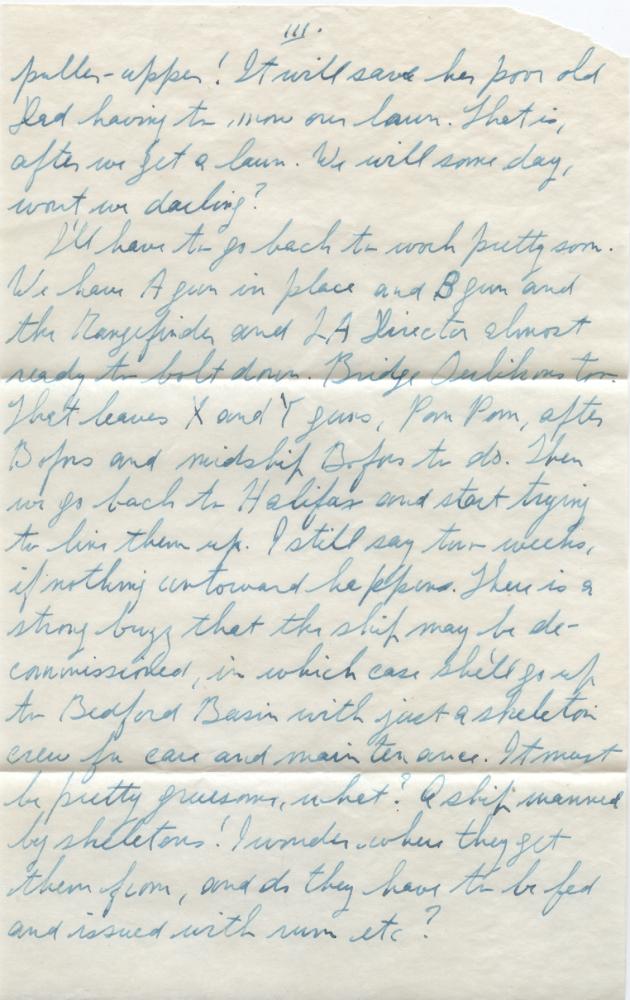 III.
puller-upper! It will save her poor old
Dad having to mow our lawn. That is,
after we get a lawn. We will some day,
wont we darling?
I'll have to go back to work pretty soon.
We have A gun in place and B gun and
the Rangefinder and LA Director almost
ready to bolt down. Bridge Oerlikons too.
That leaves X and Y guns, Pom Pom, after
Bofors and midship Bofors to do. Then
we go back to Halifax and start trying
to line them up. I still say two weeks,
if nothing untoward happens. There is a
strong buzz that the ship may be de-
commissioned, in which case she'll go up
to Bedford Basin with just a skeleton
crew for care and maintenance. It must
be pretty gruesome, what? A ship manned
by skeletons! I wonder where they get
them from, and do they have to be fed
and issued with rum etc?